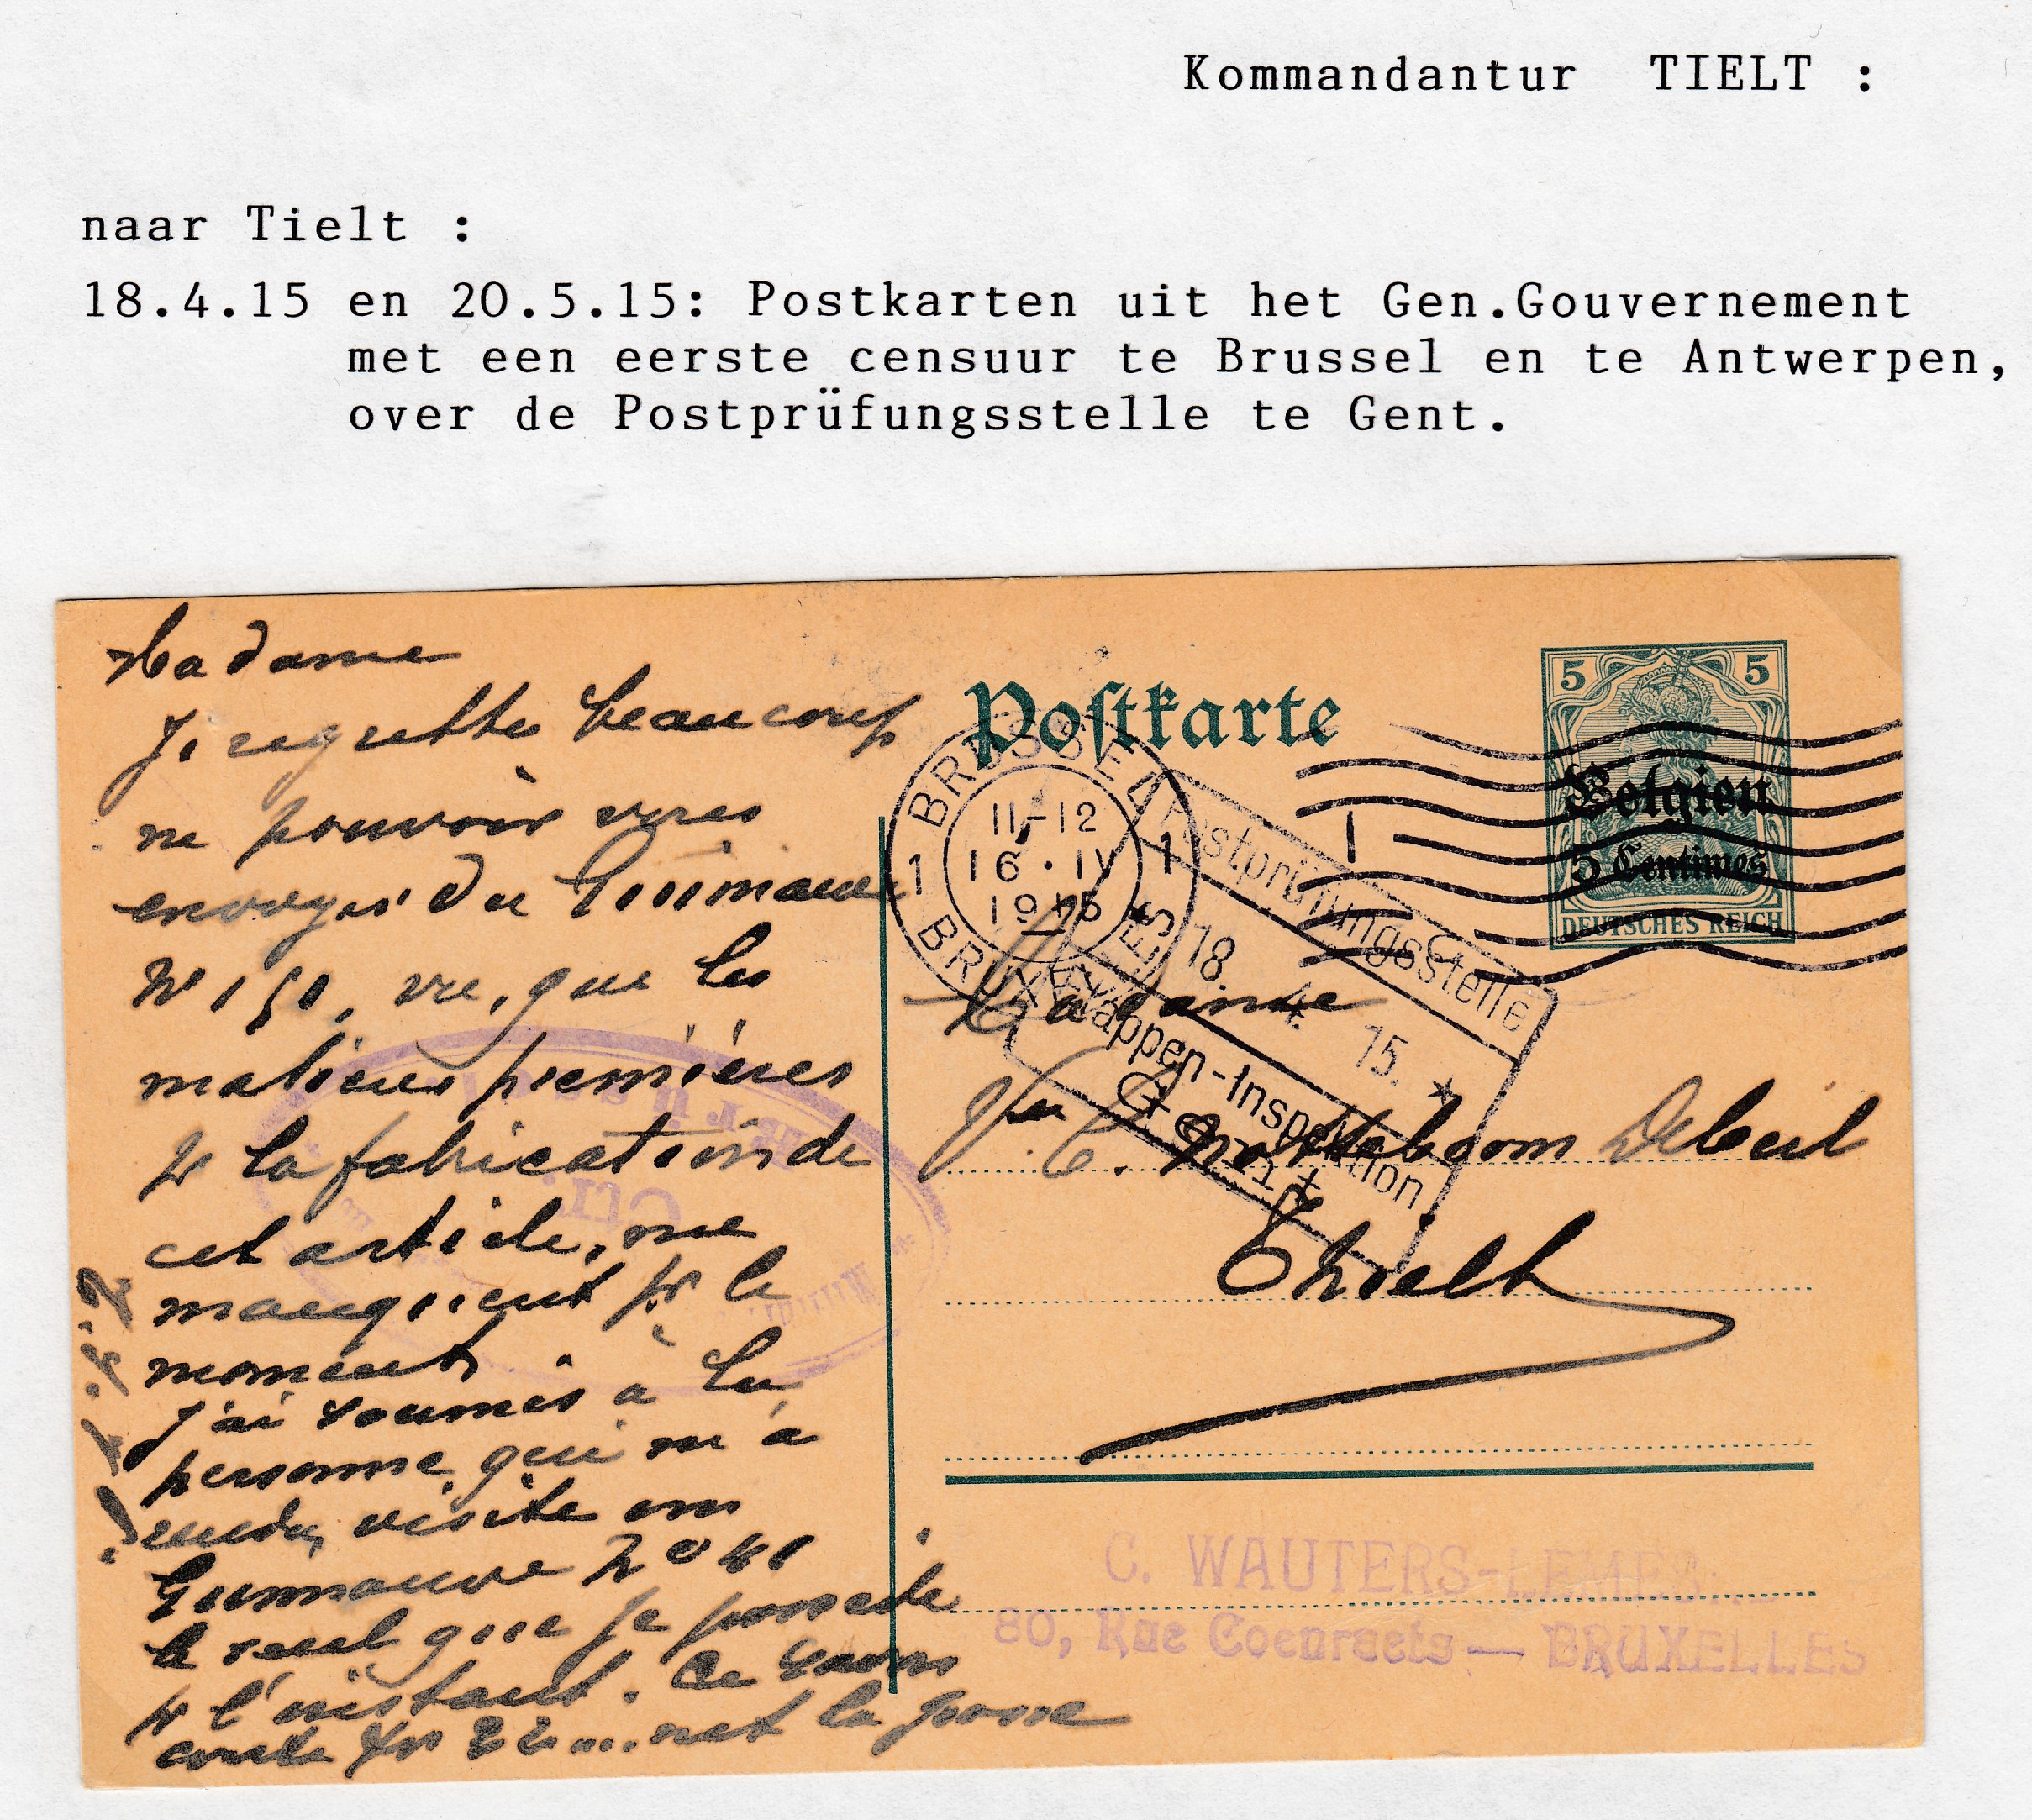 Kommandantur TIELT :
naar Tielt :
18.4.15 en 20.5.15: Postkarten uit het Gen.Gouvernement
met een eerste censuur te Brussel en te Antwerpen,
over de Postprüfungsstelle te Gent.
Madame
Je regrette beaucoup
ne pouvoir vous
envoyer du
N° 151, vu, que les
matières premières
pr la fabrication de
cet article, me
manquent pr le
moment
J'ai soumis à la
personne qui m'a
rendu visite
le seul que je possède
pr l'instant. Ce
coute fr 22... net la grosse
Postkarte
BRUSSEL
11-12
1 16·IV 1
1915
BRUXELLES
5 5
Belgien
5 Centimes
DEUTSCHES REICH
Postprüfungsstelle
* 18. 4. 15. *
Etappen-Inspektion
* Gent *
Madame
Vve C. Notteboom Debeil
Thielt
C. WAUTERS-LEMER
80, Rue Coenraets — BRUXELLES